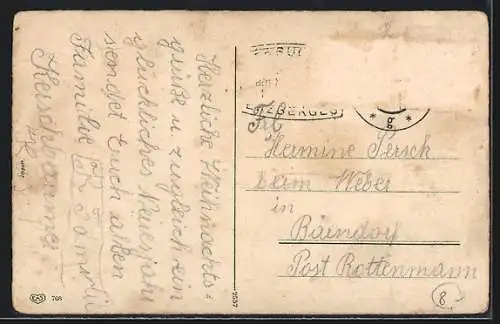 Herzliche Weihnachts=
grüße u. zugleich ein
glückliches Neuejahr
sendet Euch allen
Familie
Frl
Hermine Sersch
beim Weber
in
Bärndorf
Post Rottenmann
* g *
EAS 768
2557
8